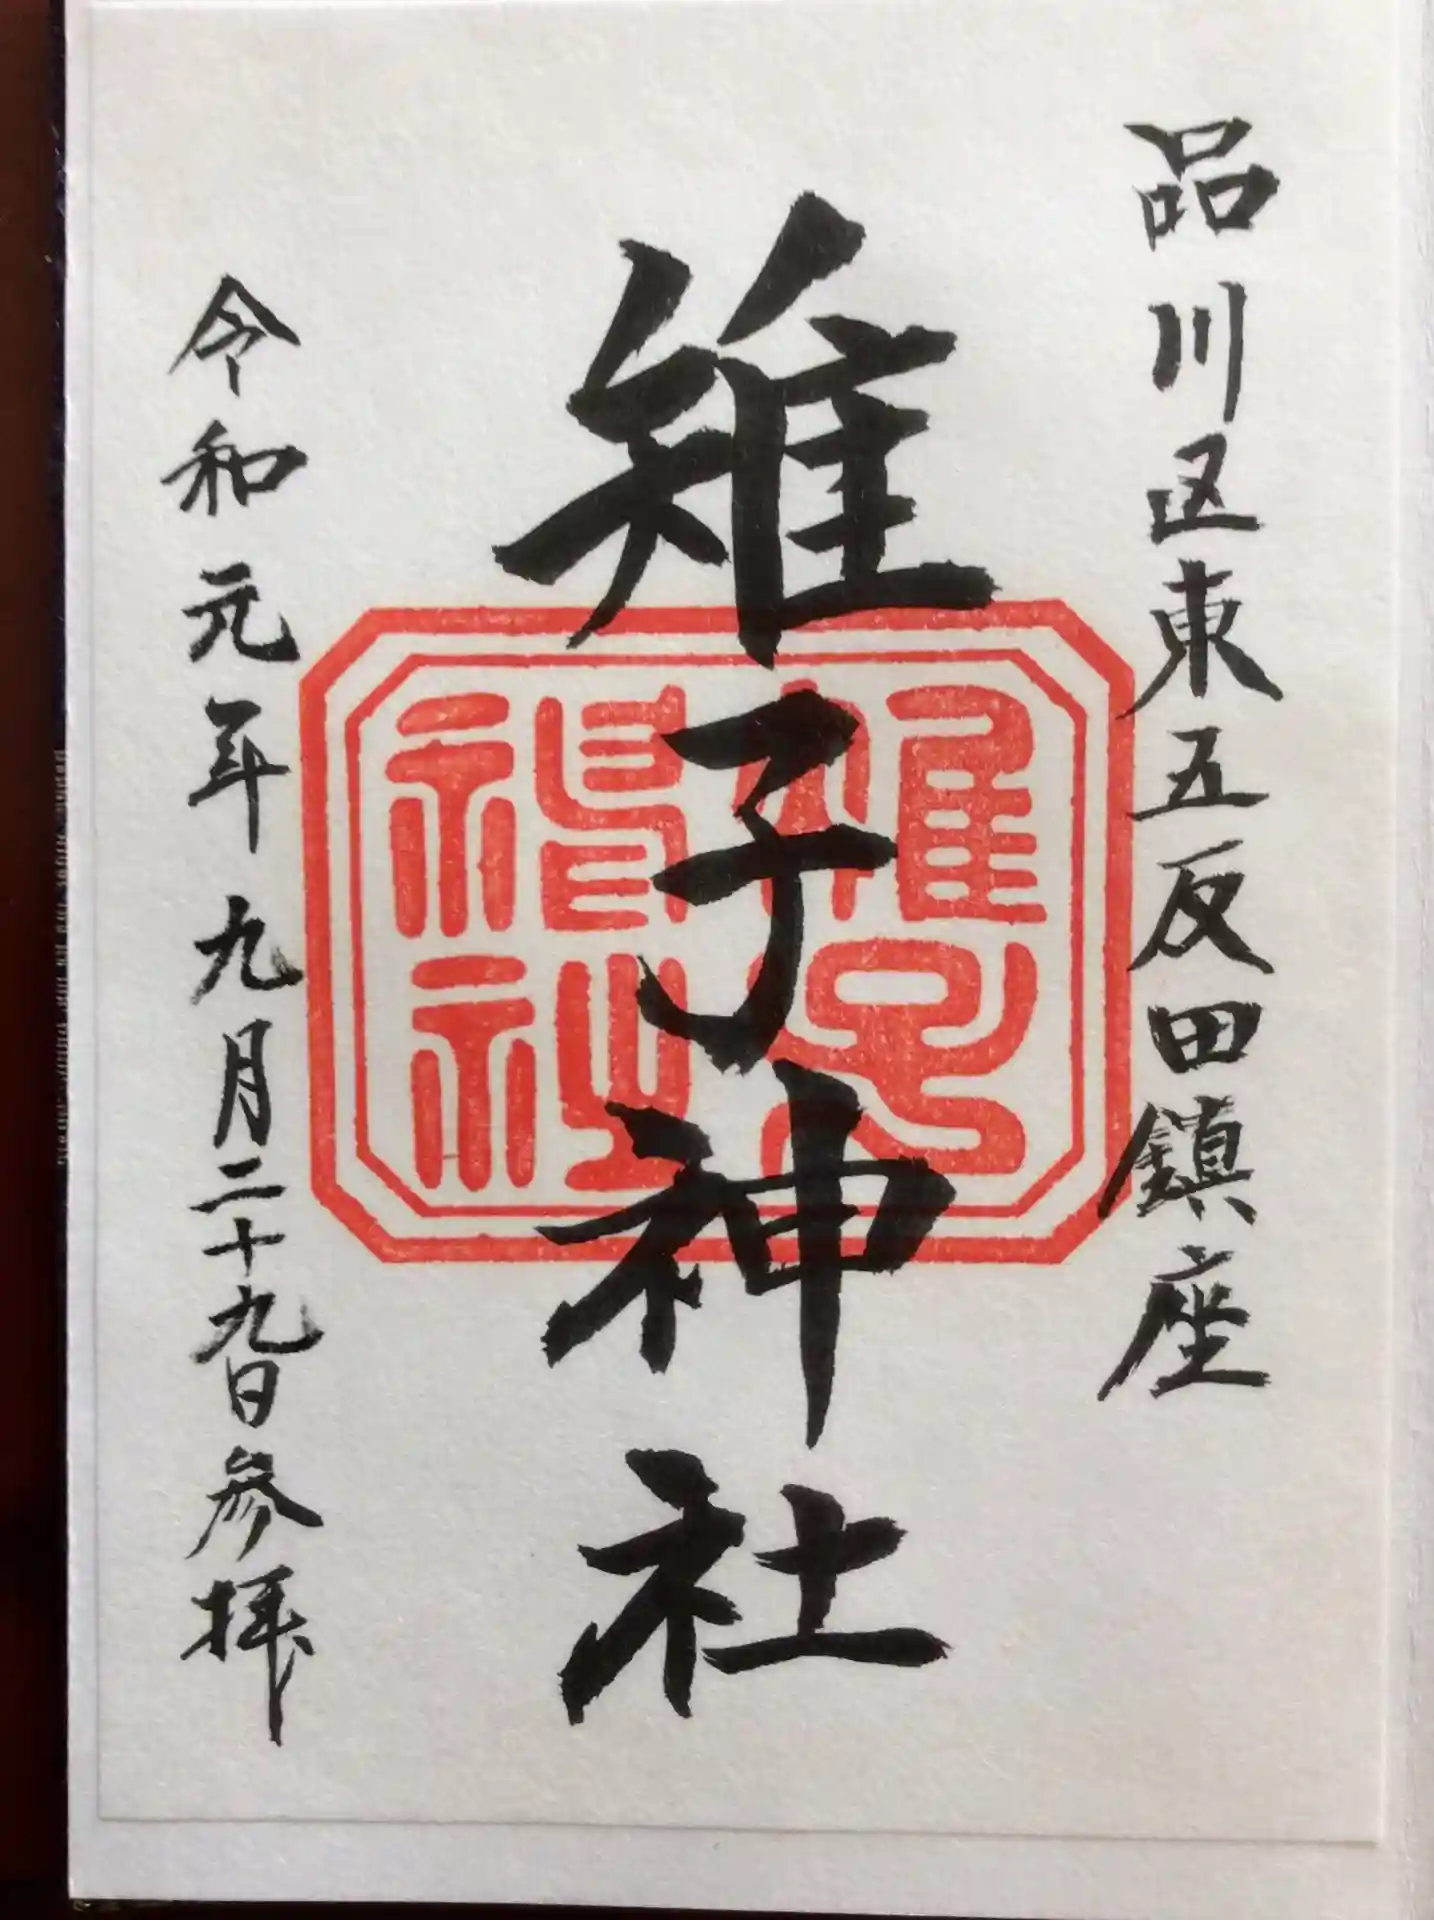 品川区東五反田鎮座
雉子神社
雉子神社
令和元年九月二十九日参拝